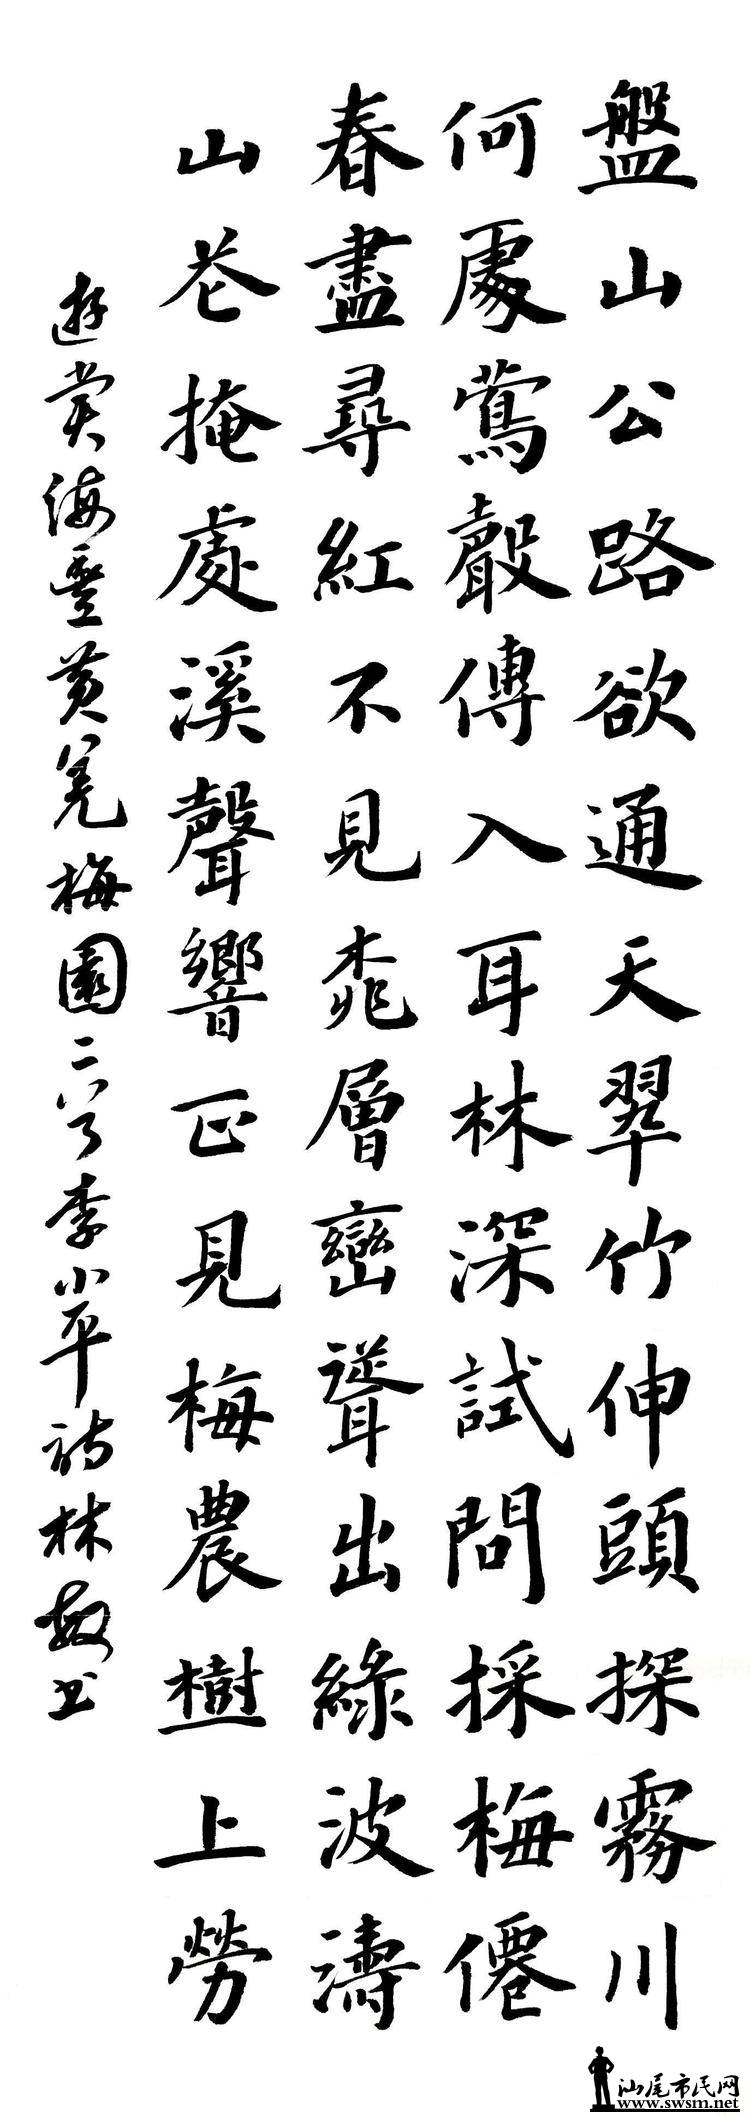 盤山公路欲通天翠竹伸頭探霧川
何處鶯聲傳入耳林深試問採梅僊
春盡尋紅不見桃層巒聳出綠波濤
山花掩處溪聲響正見梅農樹上勞
遊賞海豐黄羌梅園二首李小平詩林敏書
汕尾市民网
www.swsm.net